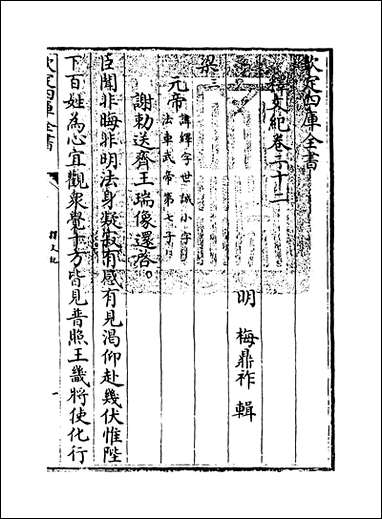 欽定四庫全書
釋文紀卷二十二
明 梅鼎祚 輯
梁三
元帝 諱繹字世誠小字
法車武帝第七子
謝勅送齊王瑞像還啓
臣聞非晦非明法身凝寂有感有見渴仰赴幾伏惟陛
下百姓為心宜觀衆覺十方皆見普照王畿將使化行
欽定四庫全書
釋文紀
一